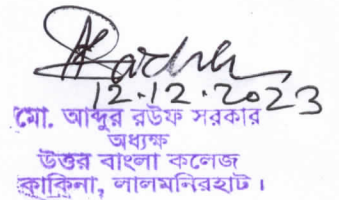 12.12.2023
মো. আব্দুর রউফ সরকার
অধ্যক্ষ
উত্তর বাংলা কলেজ
কাকিনা, লালমনিরহাট।